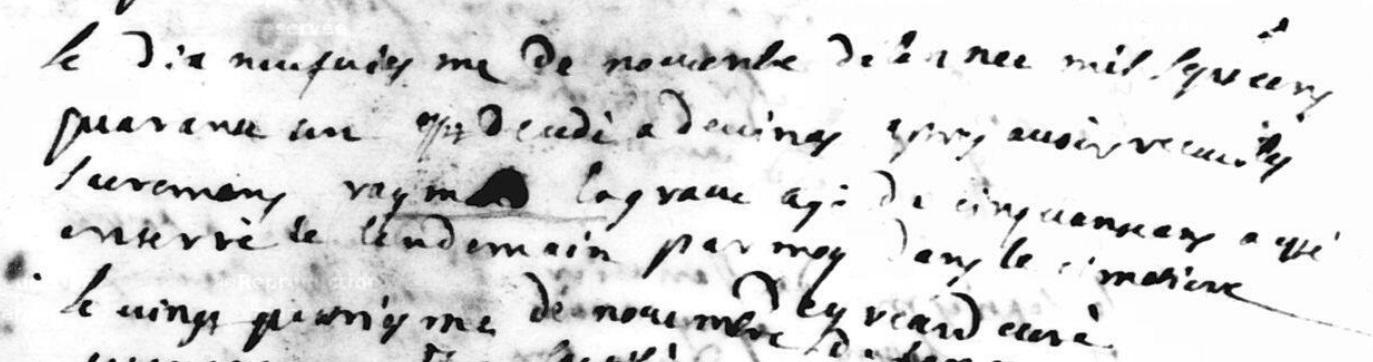 le dix neufuiesme de nouembe de lannee mil sept cens
quarante un est decedé a deuinas apres auoir receu les
sacremens raymond lograue agé de cinquante ans a esté
enterré le lendemain par moy dans le cimetiere
le vingt quatriesme de nouembre eyreaud curé